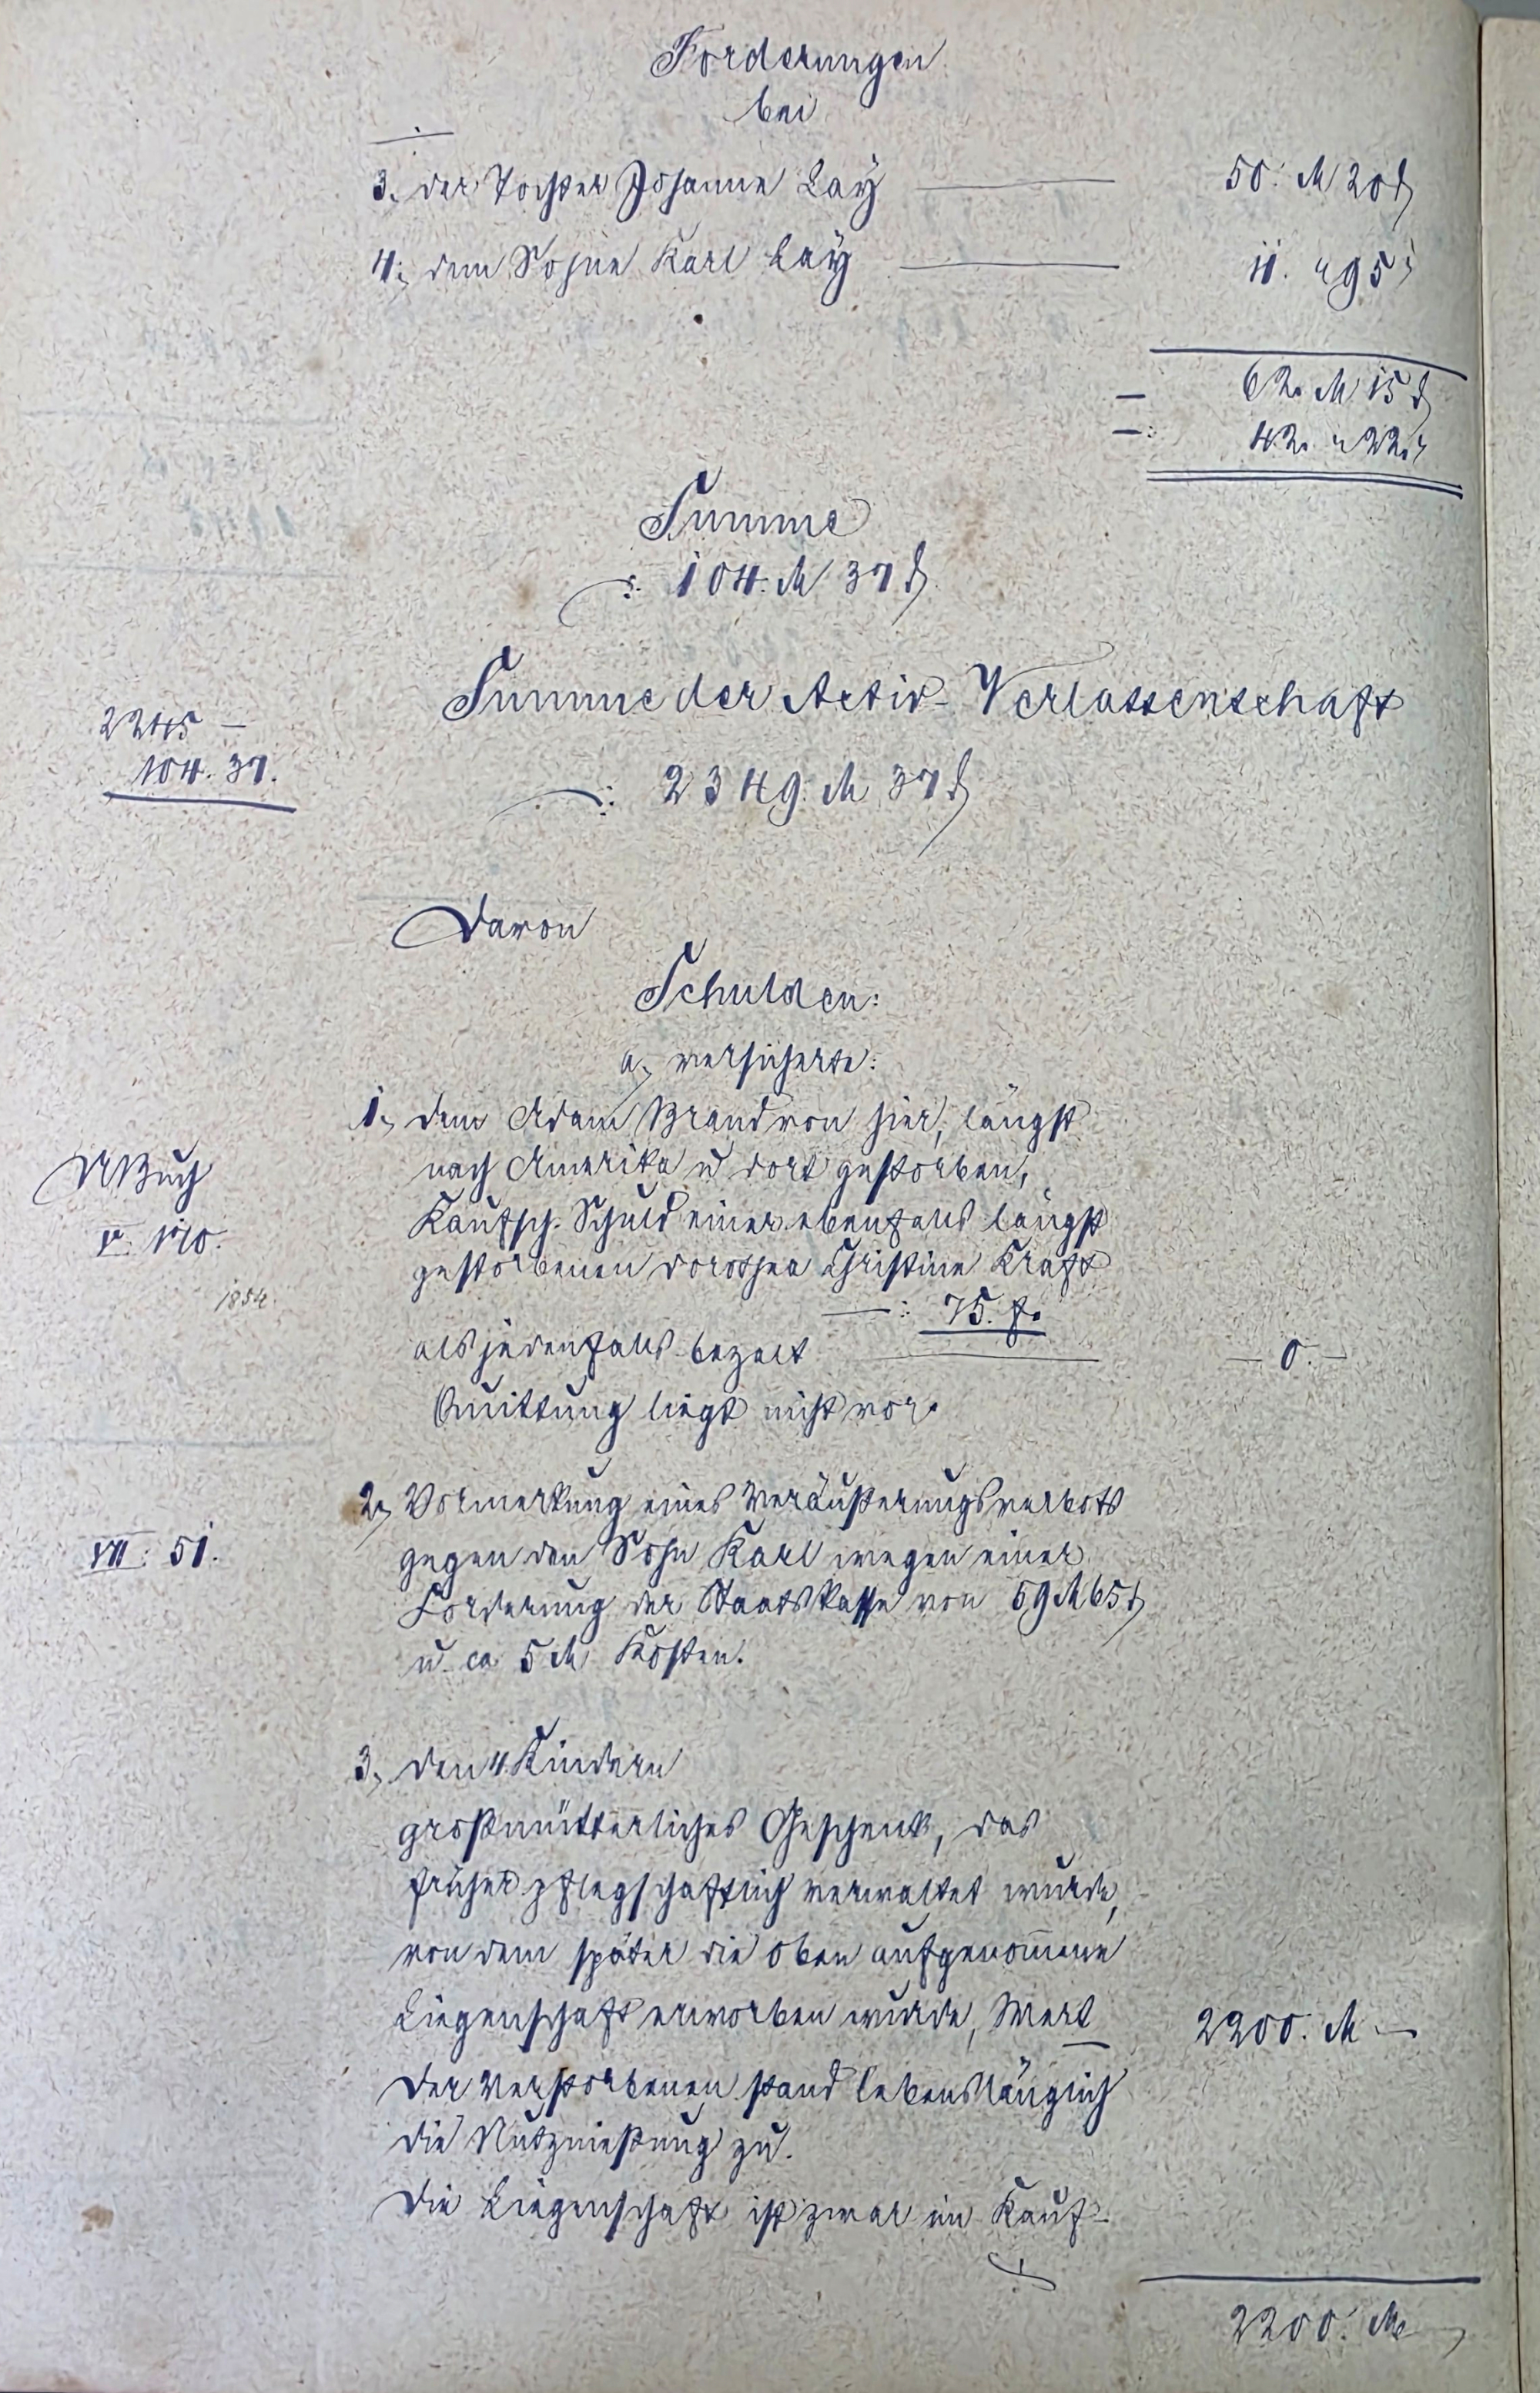 Forderungen
bei
3., der Tochter Johanne Lay 50. M 20 ₰
4., dem Sohne Karl Lay 11. " 95 "
— 62. M 15 ₰
—: 42. " 22. "
Summe
: 104. M 37 ₰
Summe der Activ-Verlassenschaft
2245 —
104. 37.
: 2349. M 37 ₰
Davon
Schulden:
a., versicherte:
1., dem Adam Brand von hier, längst
nach Amerika u. dort gestorben,
Kaufsch. Schuld einer ebenfalls längst
gestorbenen Dorothea Christine Kraft
UBuch
V. 170.
1854.
—: 75. f.
als jedenfalls bezalt — 0. —
Quittung liegt nicht vor.
2., Vormerkung eines Veräußerungsverbots
gegen den Sohn Karl wegen einer
VII: 51.
Forderung der Staatskasse von 59 M 65 ₰
u. ca 5 M Kosten.
3., den 4 Kindern
großmütterliches Geschenk, das
früher pflegschaftlich verwaltet wurde,
von dem später die oben aufgenom̄ene
Liegenschaft erworben wurde, Wert 2200. M —
Der Verstorbenen stand lebenslänglich
die Nutznießung zu.
Die Liegenschaft ist zwar im Kauf-
2200. M